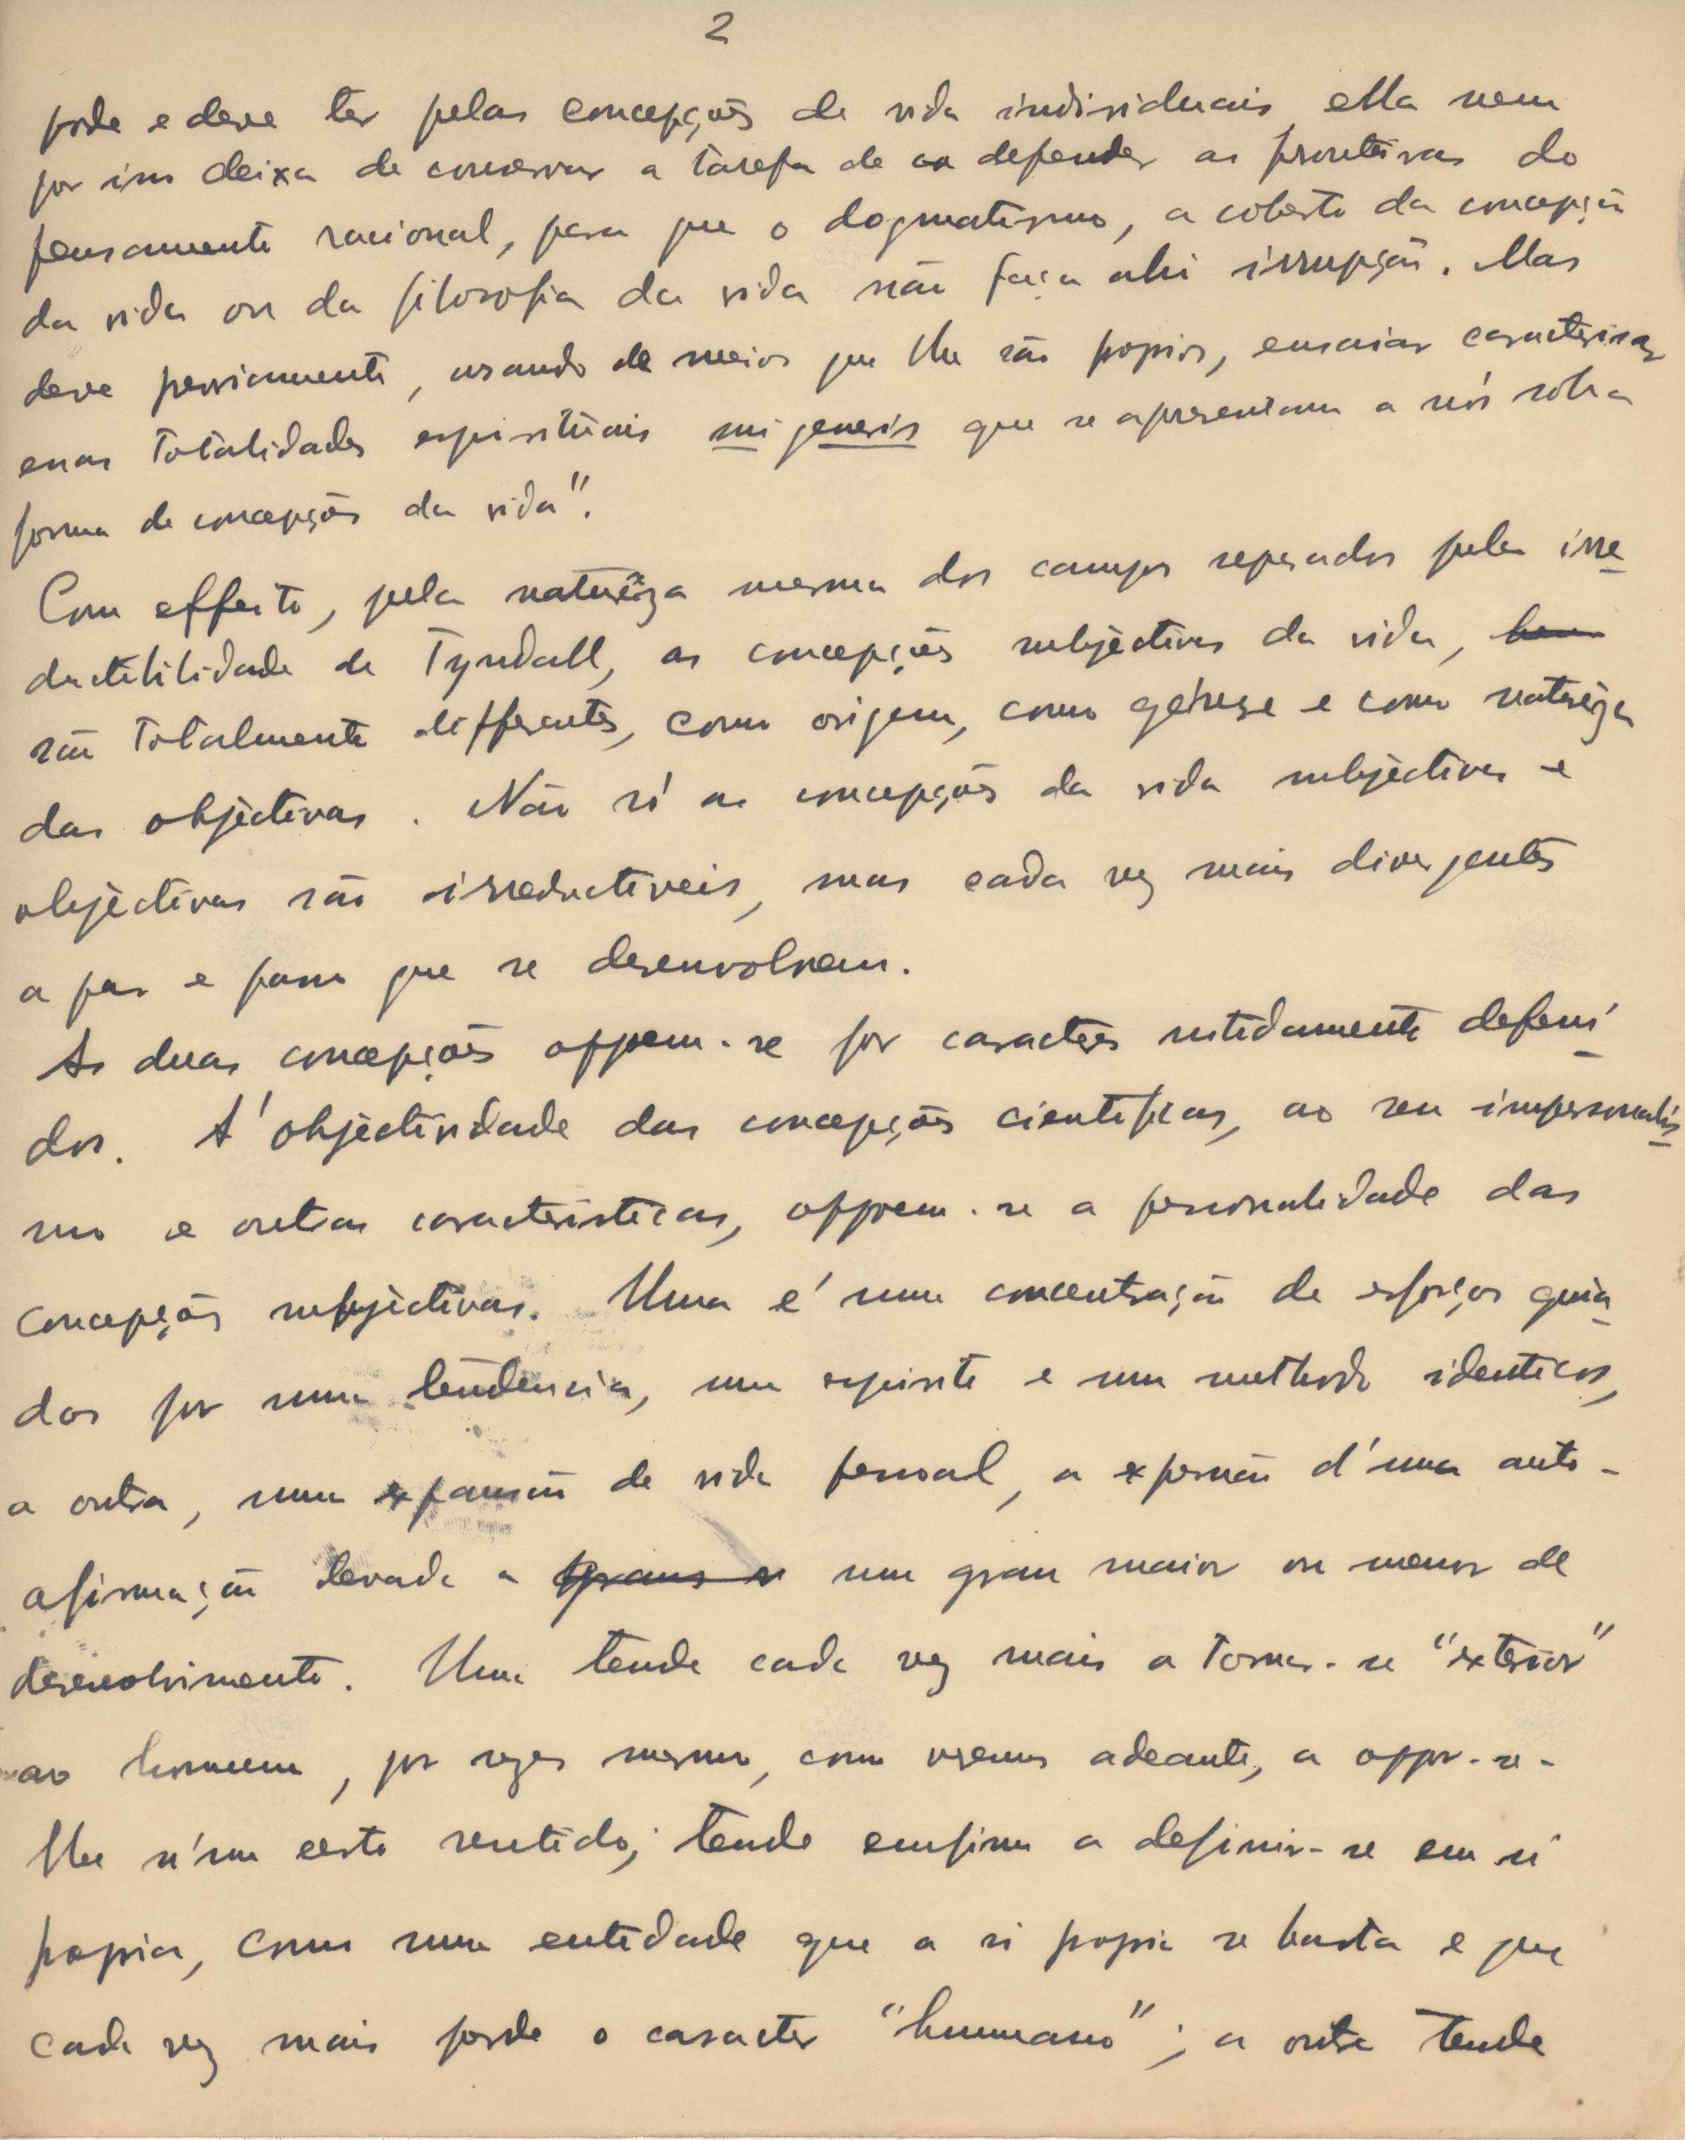 2
pode e deve ter pelas concepções de vida individuais, ella nem
por isso deixa de conservar a tarefa de defender as fronteiras do
pensamento racional, para que o dogmatismo, a coberto da concepção
da vida ou da filosofia da vida não faça ahi irrupção. Mas
deve previamente, usando de meios que lhe são proprios, ensaiar caracterisar
essas totalidades espirituais sui generis que se apresentam a nós sob a
forma de concepções da vida".
Com effeito, pela natureza mesma dos campos separados pela irre-
ductibilidade de Tyndall, as concepções subjectivas da vida,
são totalmente differentes, como origem, como génese e como natureza
das objectivas. Não só as concepções da vida subjectivas e
objectivas são irreductiveis, mas cada vez mais divergentes
a par e passo que se desenvolvem.
As duas concepções oppoem-se por caracteres nitidamente defini-
dos. A' objectividade das concepções cientificas, ao seu impersonalis-
mo e outras caracteristicas, oppoem-se a personalidade das
concepções subjectivas. Uma é uma concentração de esforços guia-
dos por uma tendencia, um espirito e um methodo identicos,
a outra, uma expansão de vida pessoal, a expressão d'uma auto-
afirmação levada a um grau maior ou menor de
desenvolvimento. Uma tende cada vez mais a tornar-se "exterior"
ao homem, por vezes mesmo, como veremos adeante, a oppor-se-
lhe n'um certo sentido; tende emfim a definir-se em si
propria, como uma entidade que a si propria se basta e que
cada vez mais perde o caracter "humano"; a outra tende